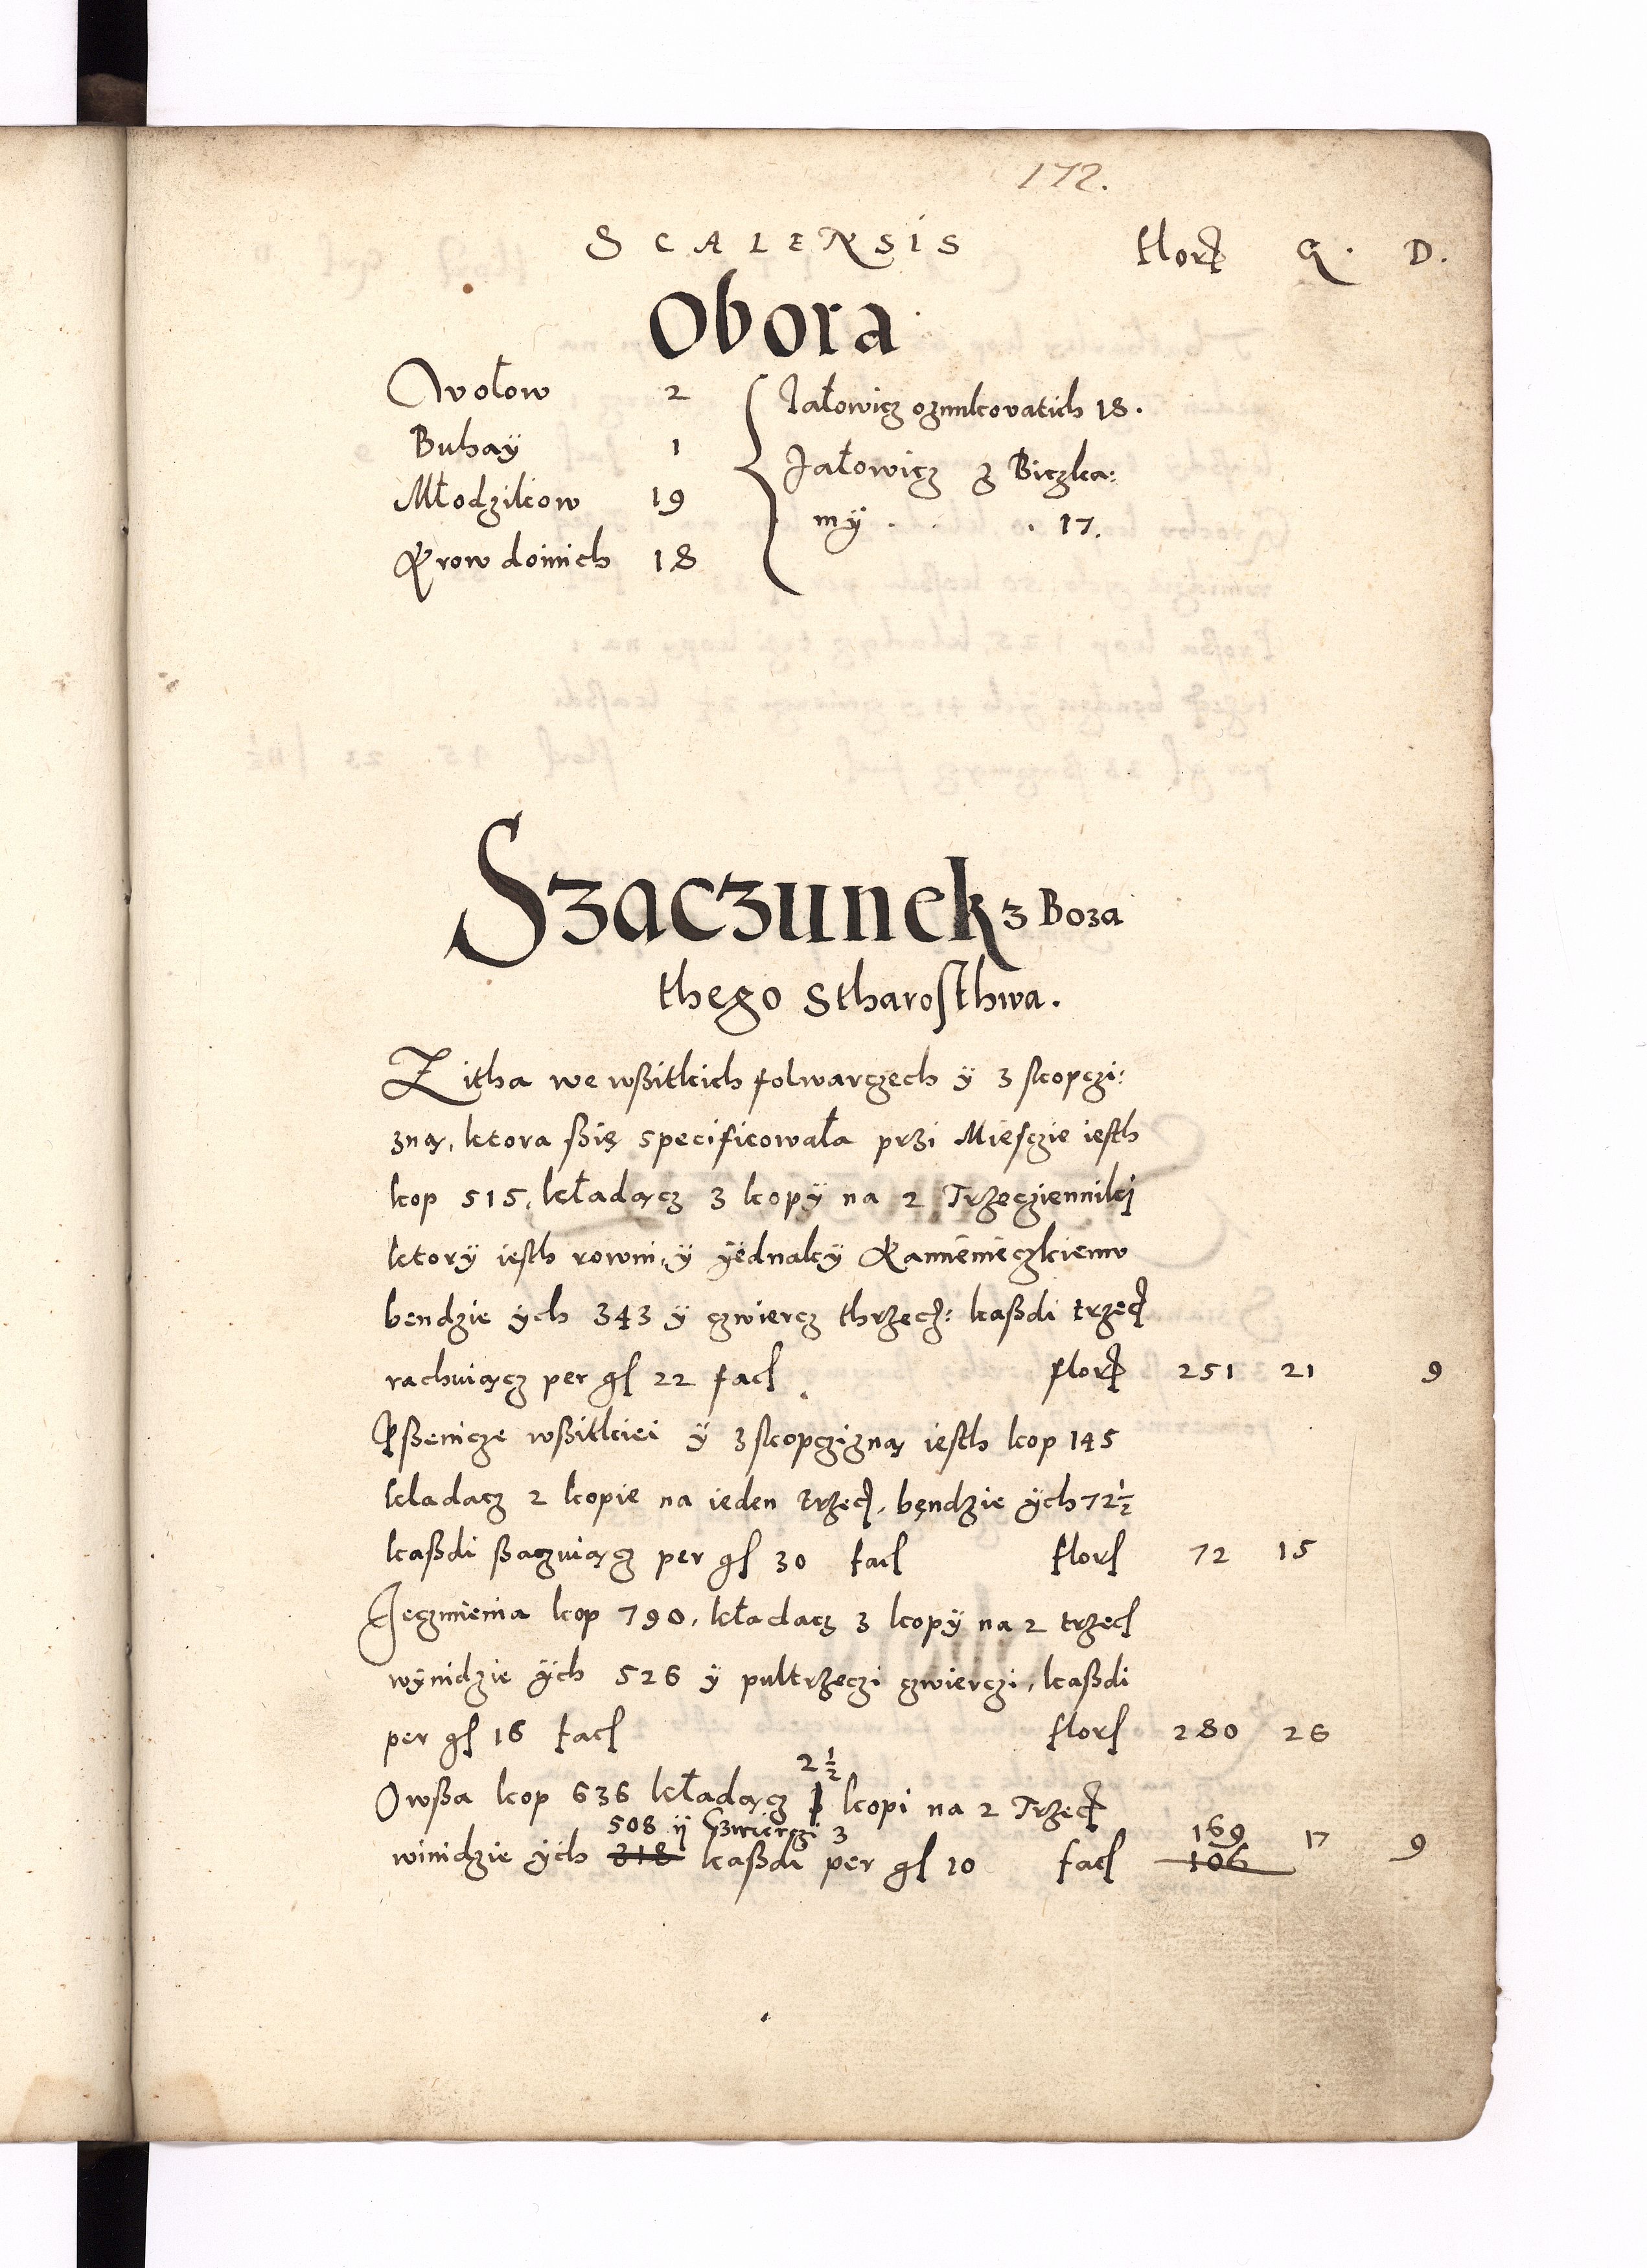 172.
SCALENSIS florſ G. D.
Obora
Wołow 2
Buhaÿ 1
Młodzikow 19
Krow doinich 18
Jałowicz ozimkovatich 18.
Jałowicz z Biczka:
mÿ . . . 17.
Szaczunek z Boza
thego Stharoſthwa.
Zitha we wßitkich folwarczech ÿ z skopczi:
zną, ktora ßię specificowała przi Mieſczie ieſth
kop 515, kładącz 3 kopÿ na 2 Trzeczienniki
ktorÿ ieſth rowni, ÿ ÿednakÿ Kamienieczkiemv
bendzie ÿch 343 ÿ czwiercz thrzecz: kaßdi trzecz
rachuiącz per gſ 22 facſ florſ 251 21 9
Pßenicze wßitkiei ÿ z skopczizną ieſth kop 145
kladacz 2 kopie na ieden Trzecz, będzie ÿch 72½
kaßdi ßaczuiącz per gſ 30 facſ florſ 72 15
Jęczmienia kop 790, kładacz 3 kopÿ na 2 trzecſ
wÿnidzie ÿch 526 ÿ pultrzeczi czwierczi, kaßdi
per gſ 16 facſ florſ 280 26
2½
Owßa kop 636 kładącz kopi na 2 Trzecz
508 ÿ Czwierczi 3 169
winidzie ÿch 318 kaßdi per gſ 10 facſ 106 17 9